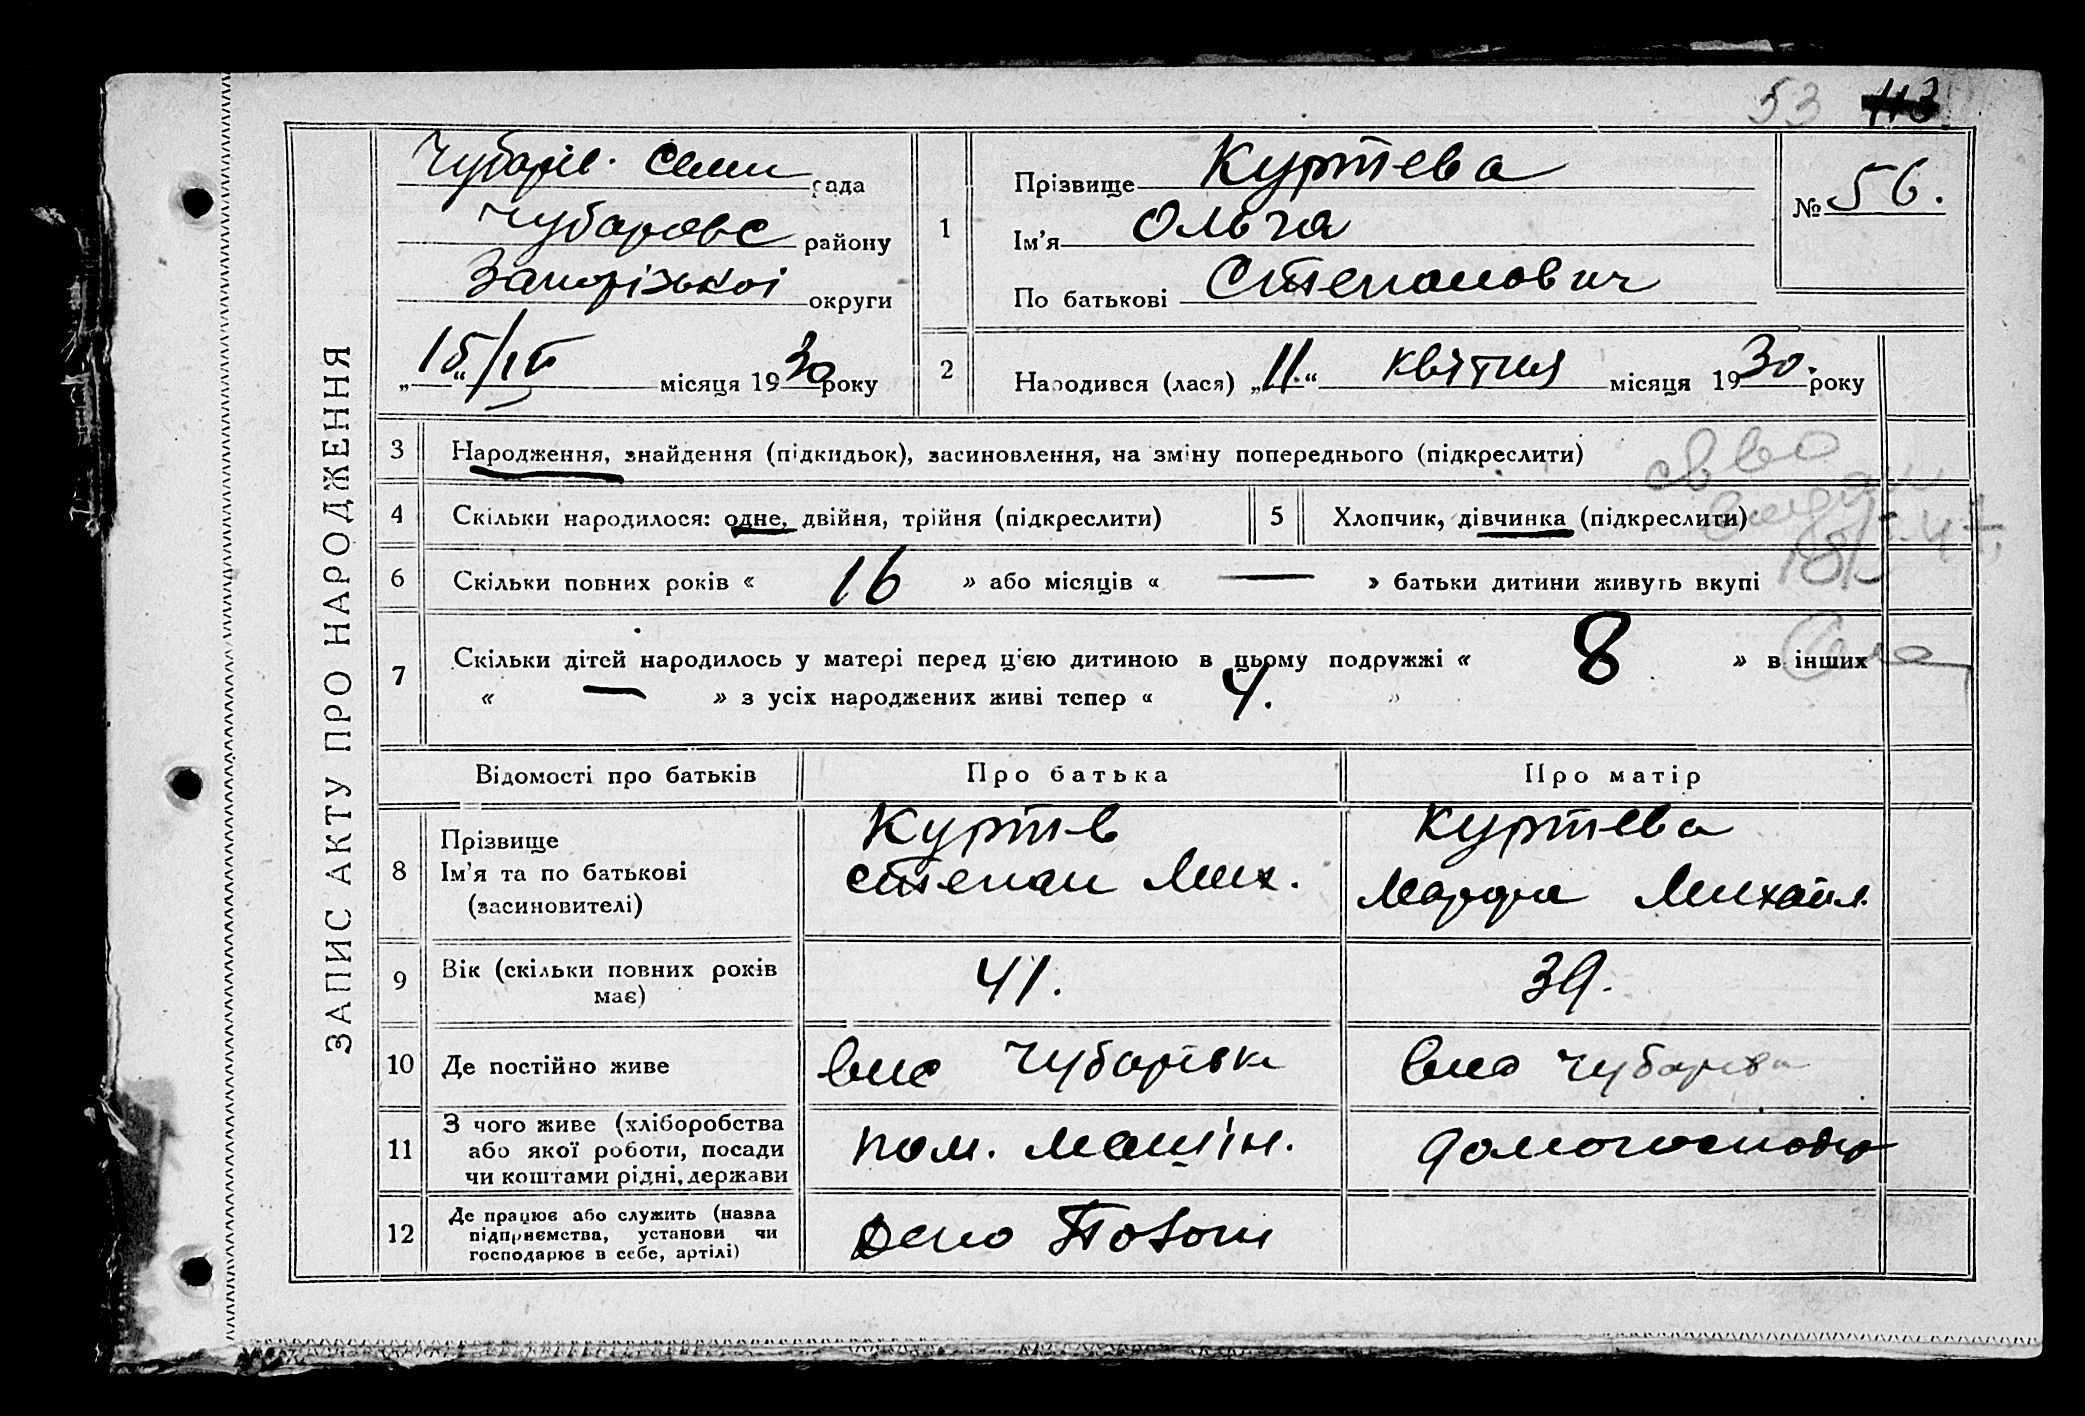 53 113
ЗАПИС АКТУ ПРО НАРОДЖЕННЯ
Чубарів. Селищ рада
Чубаревс району
Запорізької округи
„15“/IV місяця 1930 року
1
Прізвище Куртева
Ім'я Ольга
По батькові Степанович
№ 56.
2
Народився (лася) „11.“ квітня місяця 1930. року
3 Народження, знайдення (підкидьок), засиновлення, на зміну попереднього (підкреслити)
4 Скільки народилося: одне, двійня, трійня (підкреслити)
5 Хлопчик, дівчинка (підкреслити)
6 Скільки повних років « 16 » або місяців « — » батьки дитини живуть вкупі
7 Скільки дітей народилось у матері перед ц'єю дитиною в цьому подружжі « 8 » в інших
« — » з усіх народжених живі тепер « 4. »
Відомості про батьків
Про батька
Про матір
8 Прізвище
Ім'я та по батькові
(засиновителі)
Куртев
Степан Мих.
Куртева
Марфа Михайл.
9 Вік (скільки повних років
має)
41.
39.
10 Де постійно живе
Чубарівка
Чубарівка
11 З чого живе (хліборобства
або якої роботи, посади
чи коштами рідні, держави
пом. машін.
домогосподар
12 Де працює або служить (назва
підприємства, установи чи
господарює в себе, артілі)
Депо